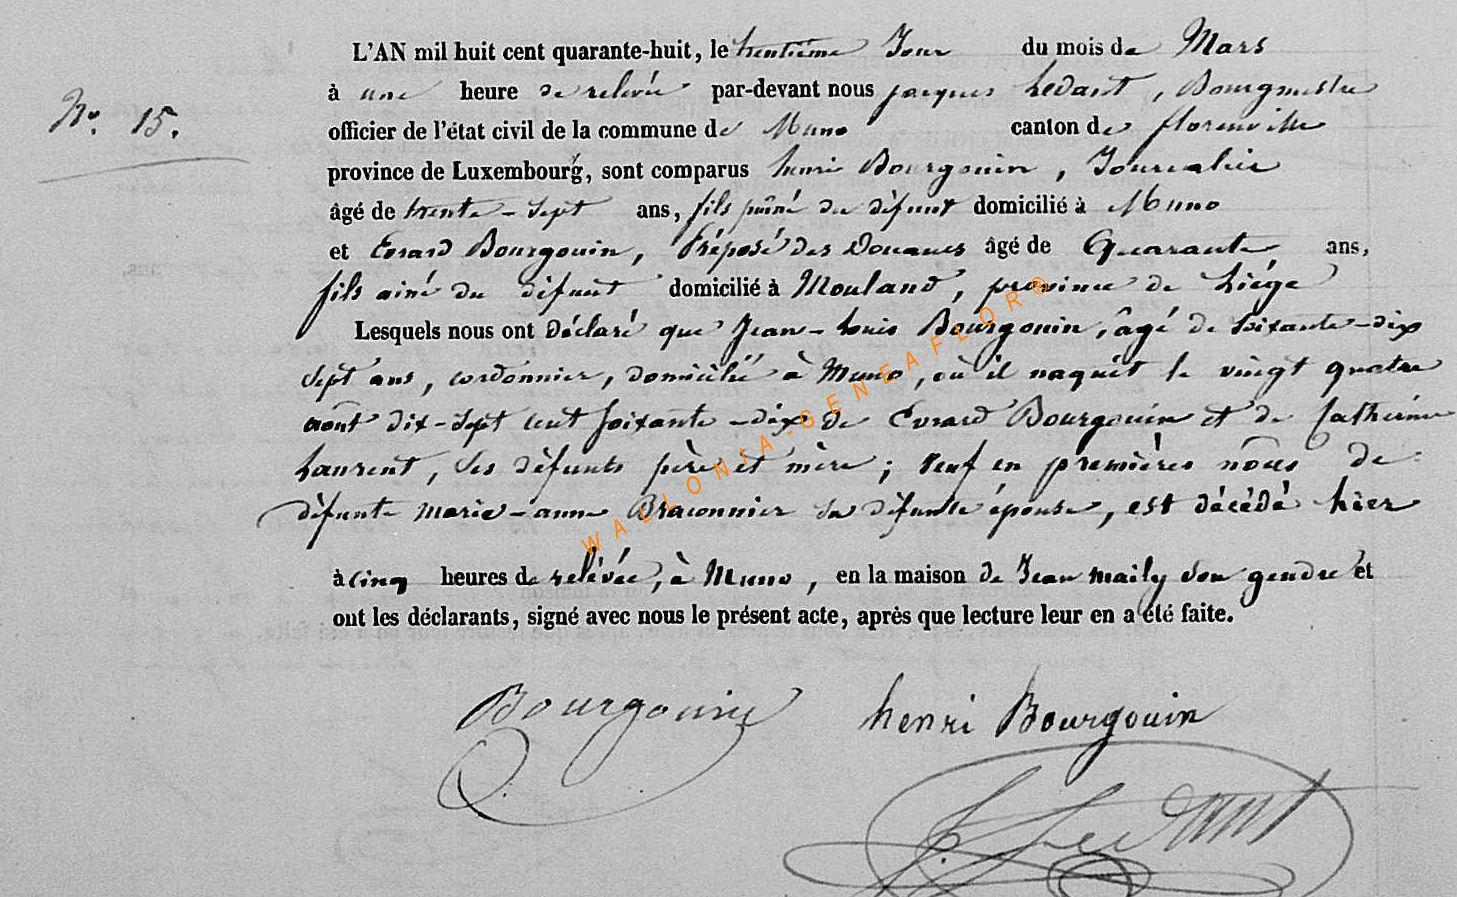 L'AN mil huit cent quarante-huit, le trentième Jour du mois de Mars
N.° 15.
à une heure de relevée par-devant nous jacques Ledant, Bourgmestre
officier de l'état civil de la commune de Muno canton de florenville
province de Luxembourg, sont comparus henri Bourgouin, Journalier
âgé de trente-sept ans, fils puîné du défunt domicilié à Muno
et Evrard Bourgouin, Préposé des Douanes âgé de Quarante ans,
fils ainé du défunt domicilié à Mouland, province de Liége
Lesquels nous ont Déclaré que Jean-Louis Bourgouin, âgé de soixante-dix
sept ans, cordonnier, domicilié à Muno, où il naquit le vingt quatre
aout dix-sept cent soixante-dix de Evrard Bourgouin et de Catherine
Laurent, ses défunts père et mère; veuf en premières noces de
défunte marie-anne Braconnier sa défunte épouse, est décédé hier
à cinq heures de relévée, à Muno, en la maison de Jean maily son gendre et
ont les déclarants, signé avec nous le présent acte, après que lecture leur en a été faite.
Bourgouin henri Bourgouin
J. Ledant
WALLONIA-GENEAFLOR®